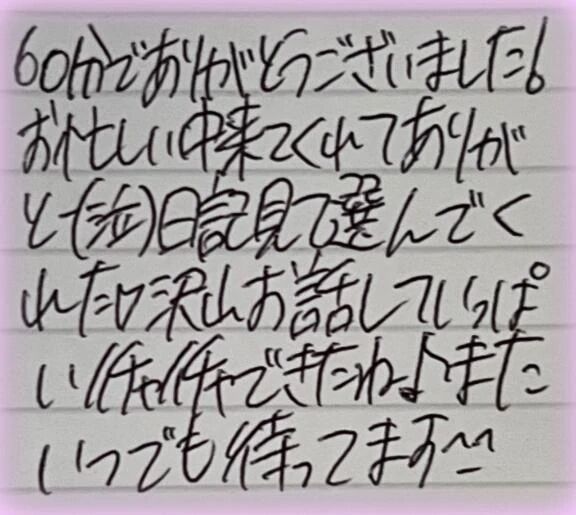 60分でありがとうございました!
お忙しい中来てくれてありが
と(泣)日記見て選んでく
れたり沢山お話していっぱ
いイチャイチャできたね♪また
いつでも待ってます^^